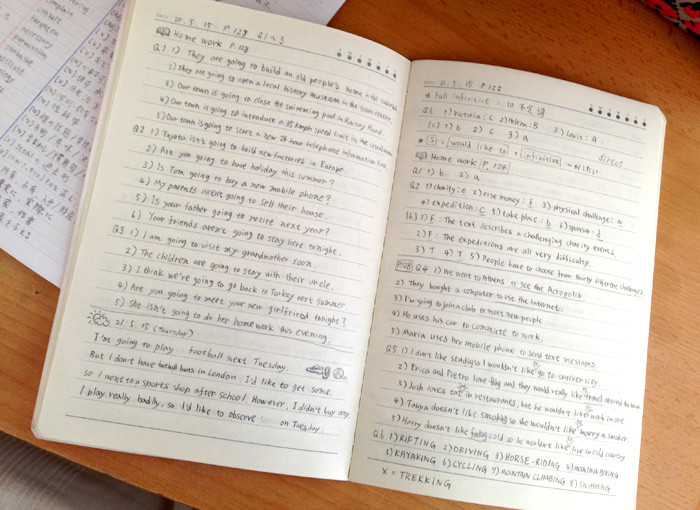 complain
consult
threaten
necessary
permission
20. 5. 15 P.128 Q1~3
Home work P.128
Q1 1) They are going to build an old people's home in the
2) They are going to open a local history museum in the town centre.
3) Our town is going to close the swimming pool in Railway Road.
4) Our town is going to introduce a 25 kmph speed limit in the
5) Our town is going to start a new 24-hour telephone information line.
Q2 1) Toyota isn't going to build new factories in Europe.
2) Are you going to have holiday this summer?
3) Is Tom going to buy a new mobile phone?
4) My parents aren't going to sell their house.
5) Is your father going to retire next year?
6) Your friends aren't going to stay here tonight.
Q3 1) I am going to visit my grandmother soon.
2) The children are going to stay with their uncle.
3) I think we're going to go back to Turkey next summer
4) Are you going to meet your new girlfriend tonight?
5) She isn't going to do her homework this evening.
21. 5. 15 (Thursday)
I'm going to play football next Tuesday.
But I don't have football boots in London. I'd like to get some.
so I went to a sports shop after school. However, I didn't buy any
I play really badly, so I'd like to observe on Tuesday.
21. 5. 15 P.122
★ full infinitive = to 不定詞
Q6 1) Victoria: C 2) Helem: B 3) Louis: A
(c) 1) b 2) c 3) a direct
★ S + would like to + infinitive ~
Home work P.128
Q1 1) b 2) a
Q2 1) charity: e 2) rise money: f 3) physical challenge: a
4) expedition: c 5) take place: b 6) sponsor: d
(b) 1) F: The text describes a challenging charity event.
2) F: The expeditions are all very difficulty.
3) T 4) T 5) People have to choose from thirty different challenges.
P128 Q4 1) We went to Athens to see the Acropolis
2) They bought a computer to use the Internet.
3) I'm going to join a club to meet new people
4) He uses his car to commute to work.
5) Maria uses her mobile phone to send text messages
Q5 1) I don't like studying so I wouldn't like to go to university.
2) Erica and Pietro love and they would really like to travel around the world
3) Josh loves in restaurants, but he wouldn't like to work in one
4) Tanya doesn't like smoking so she wouldn't like to marry a smoker
5) Harry doesn't like feeling cold so he wouldn't like to live in cold country
Q6 1) RIFTING 2) DRIVING 3) HORSE-RIDING 4) MOUNTAIN BIKING
5) KAYAKING 6) CYCLING 7) MOUNTAIN CLIMBING 8) SWIMMING
X = TREKKING